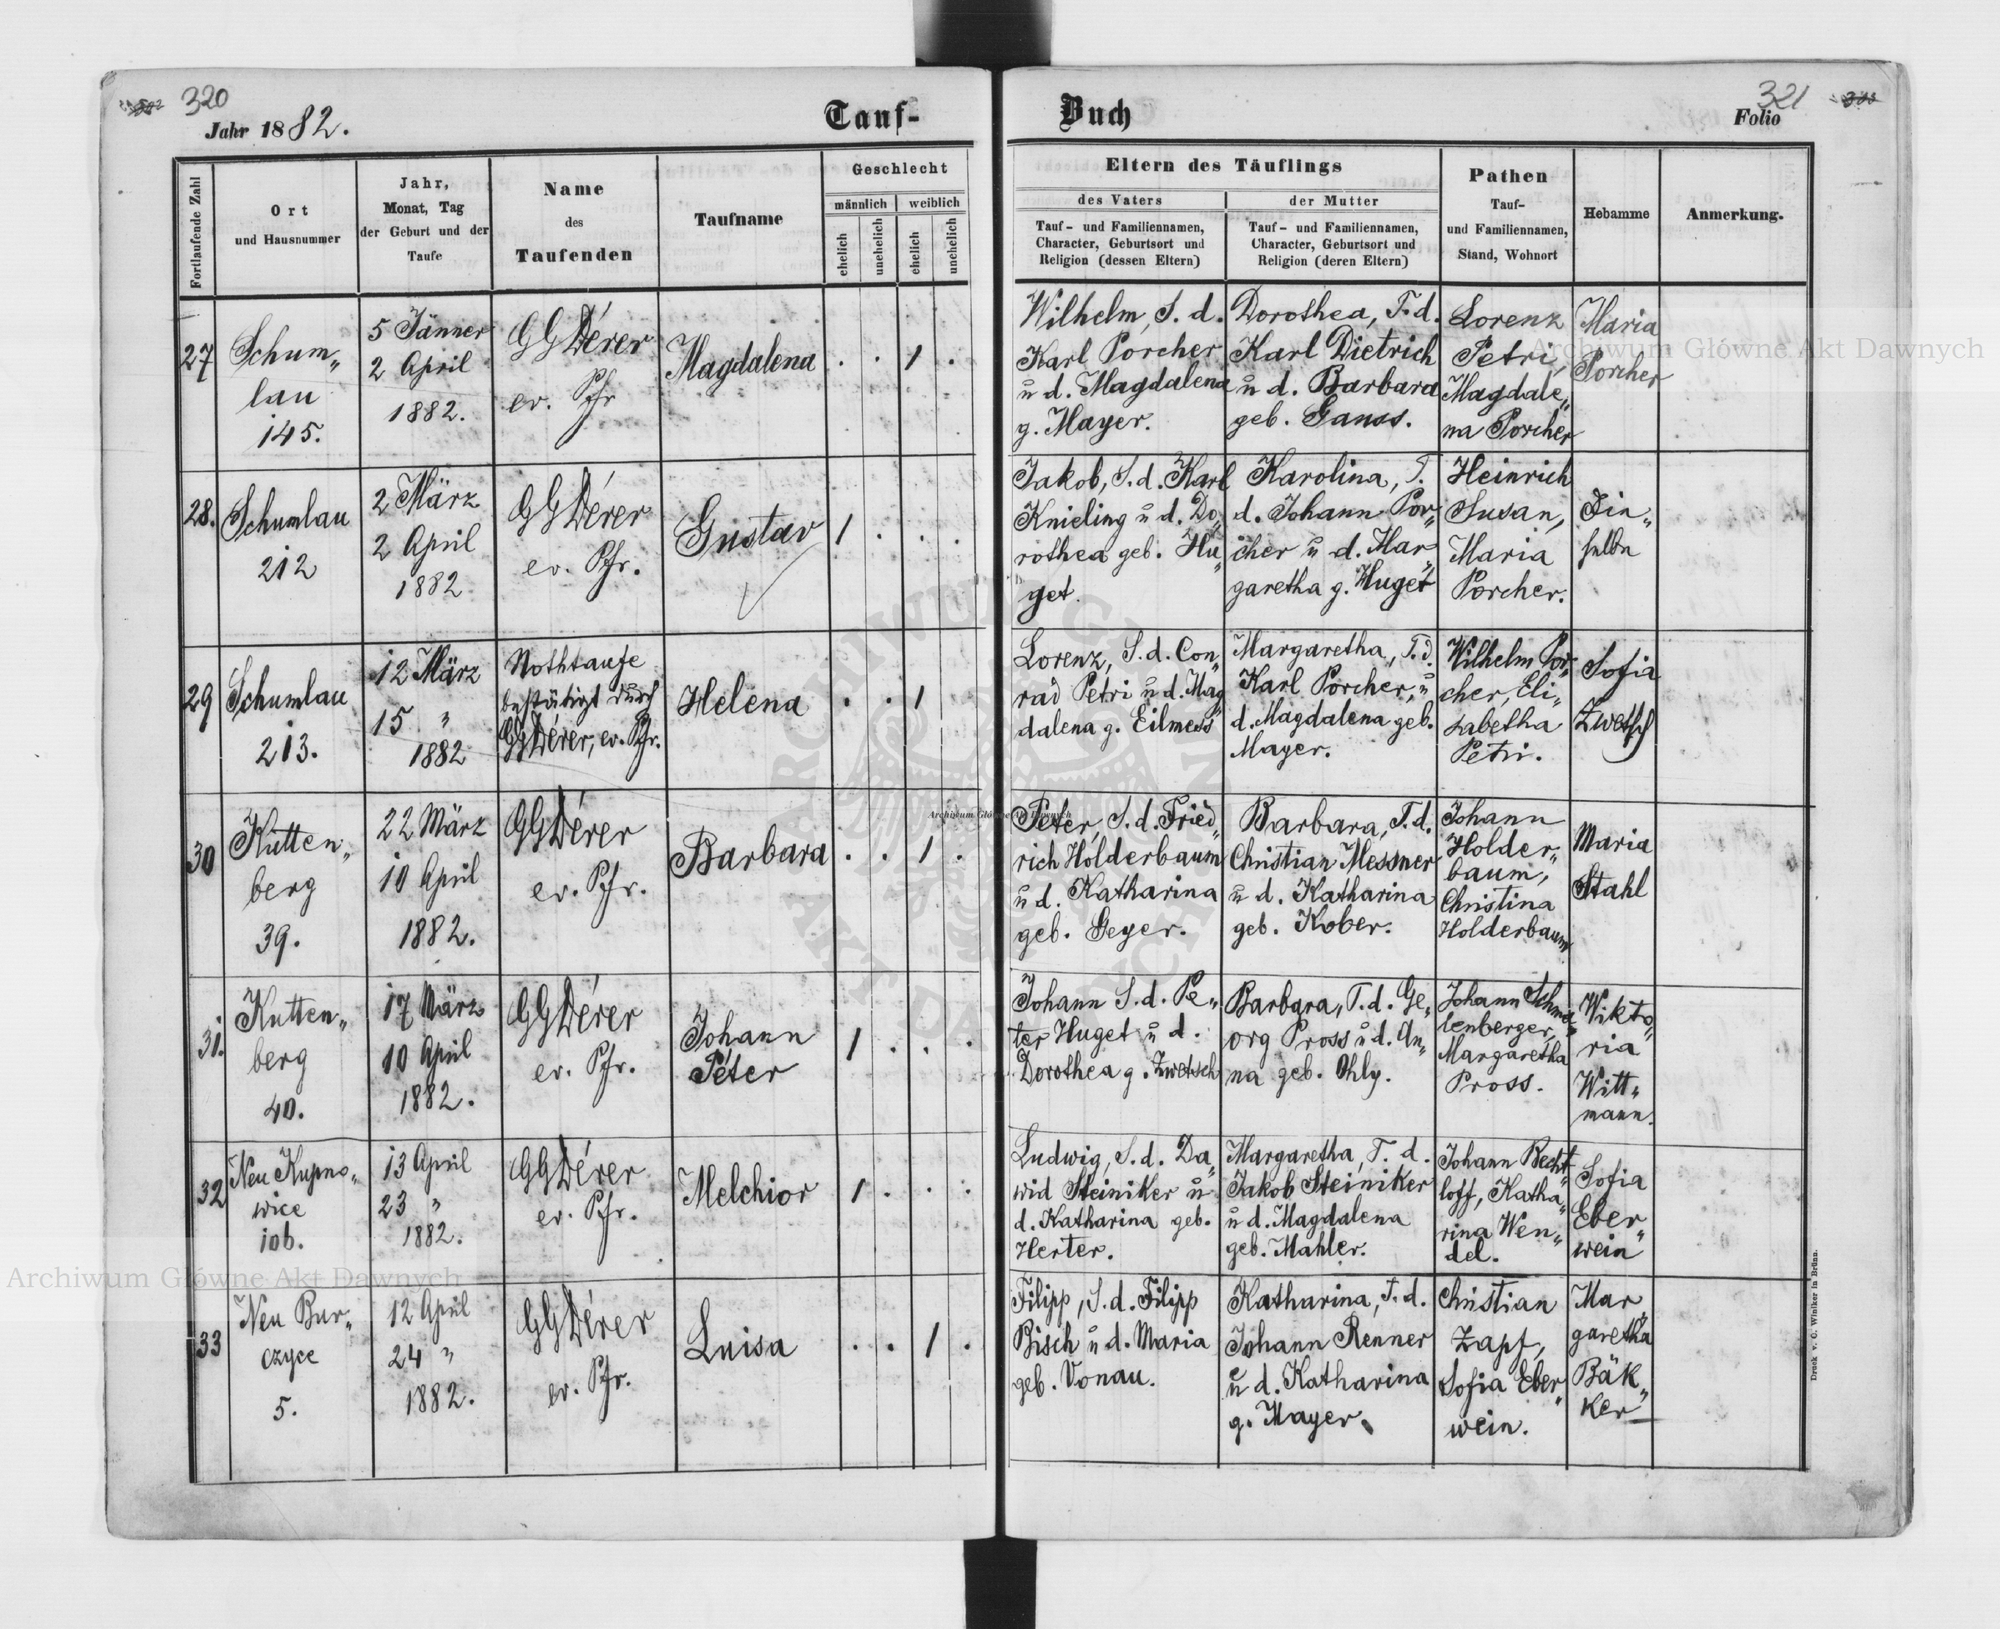 320
Jahr 1882.
Tauf-
Buch
321
Folio
Fortlaufende Zahl
Ort
und Hausnummer
Jahr,
Monat, Tag
der Geburt und der
Taufe
Name
des
Taufenden
Taufname
Geschlecht
männlich
weiblich
ehelich
unehelich
ehelich
unehelich
Eltern des Täuflings
des Vaters
der Mutter
Tauf- und Familiennamen,
Character, Geburtsort und
Religion (dessen Eltern)
Tauf- und Familiennamen,
Character, Geburtsort und
Religion (deren Eltern)
Pathen
Tauf-
und Familiennamen,
Stand, Wohnort
Hebamme
Anmerkung.
27
Schum„
lau
145.
5 Jänner
2 April
1882.
GGDérer
ev. Pfr
Magdalena
. . 1 .
Wilhelm, S. d.
Karl Porcher
u d. Magdalena
g. Mayer.
Dorothea, T. d.
Karl Dietrich
u d. Barbara
geb. Ganss.
Lorenz
Petri,
Magdale„
na Porcher
Maria
Porcher
28.
Schumlau
212
2 März
2 April
1882
GGDérer
ev. Pfr.
Gustav
1 . . .
Jakob, S. d. Karl
Knieling u d. Do„
rothea geb. Hu„
get.
Karolina, T.
d. Johann Por„
cher u d. Mar„
garetha g. Huget
Heinrich
Susan,
Maria
Porcher.
Die„
selbe
29
Schumlau
213.
12 März
15 "
1882
Nothtaufe
bestätigt durch
GGDérer, ev. Pfr.
Helena
. . 1
Lorenz, S. d. Con„
rad Petri u d. Mag„
dalena g. Eilmess
Margaretha, T. d.
Karl Porcher, u
d. Magdalena geb.
Mayer.
Wilhelm Por„
cher, Eli„
sabetha
Petri.
Sofia
Zwetsch
30
Kutten„
berg
39.
22 März
10 April
1882.
GGDérer
ev. Pfr.
Barbara
. . 1 .
Peter, S. d. Fried„
rich Holderbaum
u d. Katharina
geb. Geyer.
Barbara, T. d.
Christian Messner
u d. Katharina
geb. Kober.
Johann
Holder„
baum,
Christina
Holderbaum
Maria
Stahl
31.
Kutten„
berg
40.
17 März
10 April
1882.
GGDérer
ev. Pfr.
Johann
Peter
1 . . .
Johann S. d. Pe„
ter Huget u d.
Dorothea g. Zwetsch
Barbara, T. d. Ge„
org Pross u d. An„
na geb. Ohly.
Johann Schmel„
lenberger,
Margaretha
Pross.
Wikto„
ria
Witt„
mann.
32
Neu Kupno„
wice
106.
13 April
23 "
1882.
GGDérer
ev. Pfr.
Melchior
1 . . .
Ludwig, S. d. Da„
wid Steiniker u
d. Katharina geb.
Herter.
Margaretha, T. d.
Jakob Steiniker
u d. Magdalena
geb. Mahler.
Johann Becht„
loff, Katha„
rina Wen„
del.
Sofia
Eber„
wein
33
Neu Bur„
czyce
5.
12 April
24 "
1882.
GGDérer
ev. Pfr.
Luisa
. . 1 .
Filipp, S. d. Filipp
Bisch u d. Maria
geb. Vonau.
Katharina, T. d.
Johann Renner
u d. Katharina
g. Mayer.
Christian
Zapf,
Sofia Eber„
wein.
Mar„
garetha
Bäk„
ker
Druck v. C. Winiker in Brünn.
Archiwum Główne Akt Dawnych
Archiwum Główne Akt Dawnych
Archiwum Główne Akt Dawnych